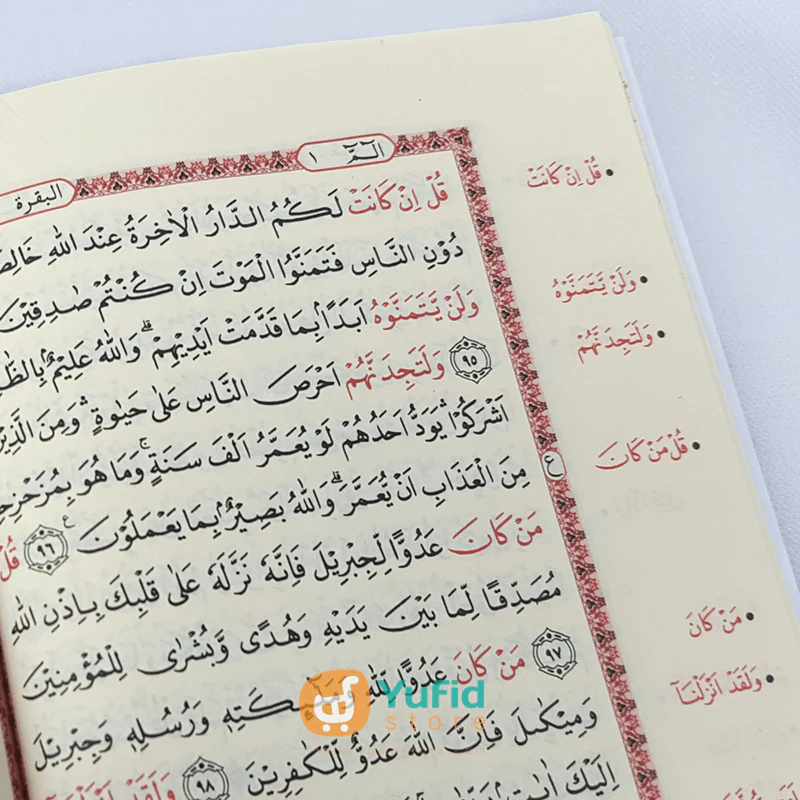 البقرة
الٓمّٓ ١
قُلْ اِنْ كَانَتْ لَكُمُ الدَّارُ الْاٰخِرَةُ عِنْدَ اللّٰهِ
دُوْنِ النَّاسِ فَتَمَنَّوُا الْمَوْتَ اِنْ كُنْتُمْ صٰدِقِيْنَ
وَلَنْ يَّتَمَنَّوْهُ اَبَدًاۢ بِمَا قَدَّمَتْ اَيْدِيْهِمْ ۗ وَاللّٰهُ عَلِيْمٌ ۢ
٩٥ وَلَتَجِدَنَّهُمْ اَحْرَصَ النَّاسِ عَلٰى حَيٰوةٍ ۛ وَمِنَ الَّذِيْنَ
اَشْرَكُوْا ۛ يَوَدُّ اَحَدُهُمْ لَوْ يُعَمَّرُ اَلْفَ سَنَةٍ ۚ وَمَا هُوَ
مِنَ الْعَذَابِ اَنْ يُّعَمَّرَ ۗ وَاللّٰهُ بَصِيْرٌۢ بِمَا يَعْمَلُوْنَ ع ٩٦ قُلْ
مَنْ كَانَ عَدُوًّا لِّجِبْرِيْلَ فَاِنَّهٗ نَزَّلَهٗ عَلٰى قَلْبِكَ بِاِذْنِ اللّٰهِ
مُصَدِّقًا لِّمَا بَيْنَ يَدَيْهِ وَهُدًى وَّبُشْرٰى لِلْمُؤْمِنِيْنَ
٩٧ مَنْ كَانَ عَدُوًّا لِّلّٰهِ وَمَلٰۤىِٕكَتِهٖ وَرُسُلِهٖ وَجِبْرِيْلَ
وَمِيْكٰىلَ فَاِنَّ اللّٰهَ عَدُوٌّ لِّلْكٰفِرِيْنَ ٩٨ وَلَقَدْ
اِلَيْكَ
ع
• قُلْ اِنْ كَانَتْ
• وَلَنْ يَّتَمَنَّوْهُ
• وَلَتَجِدَنَّهُمْ
• قُلْ مَنْ كَانَ
• مَنْ كَانَ
• وَلَقَدْ اَنْزَلْنَآ
YuFid
store